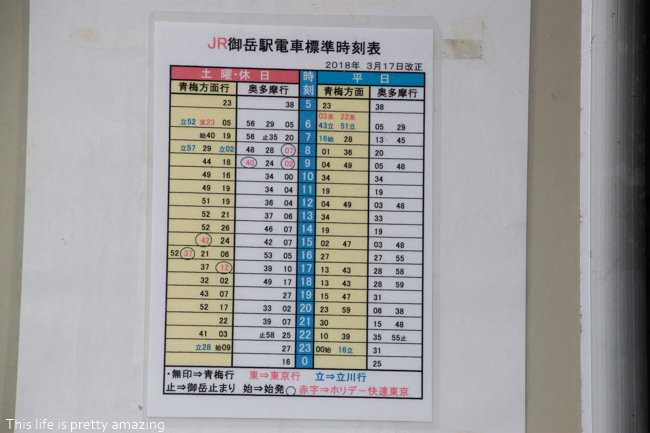 JR御岳駅電車標準時刻表
2018年 3月17日改正
土曜・休日 時刻 平日
青梅方面行 奥多摩行 青梅方面行 奥多摩行
23 38 5 23 38
03東 22東
立52 東23 05 56 29 05 6 43立 51立 05 29
始40 19 56 止35 20 7 16始 28 13 45
立57 29 立02 48 28 07 8 01 36 20
44 18 40 24 02 9 04 49 05 48
49 16 34 00 10 34 34
49 19 34 04 11 19 19
51 19 36 04 12 04 49 03 48
52 21 37 06 13 34 33
52 26 46 07 14 19 19
42 24 42 07 15 02 47 03 48
52 37 21 06 53 05 16 27 27 55
37 12 39 10 17 13 43 28 58
32 02 49 17 18 13 43 28 59
43 07 27 19 15 47 31
52 17 33 02 20 23 59 06 38
22 39 07 21 30 15 48
41 03 止58 25 22 10 39 35 55止
立28 始09 27 23 00始 16立 31
16 0 25
・無印⇒青梅行 東⇒東京行 立⇒立川行
止⇒御岳止まり 始⇒始発 ○赤字⇒ホリデー快速東京
This life is pretty amazing